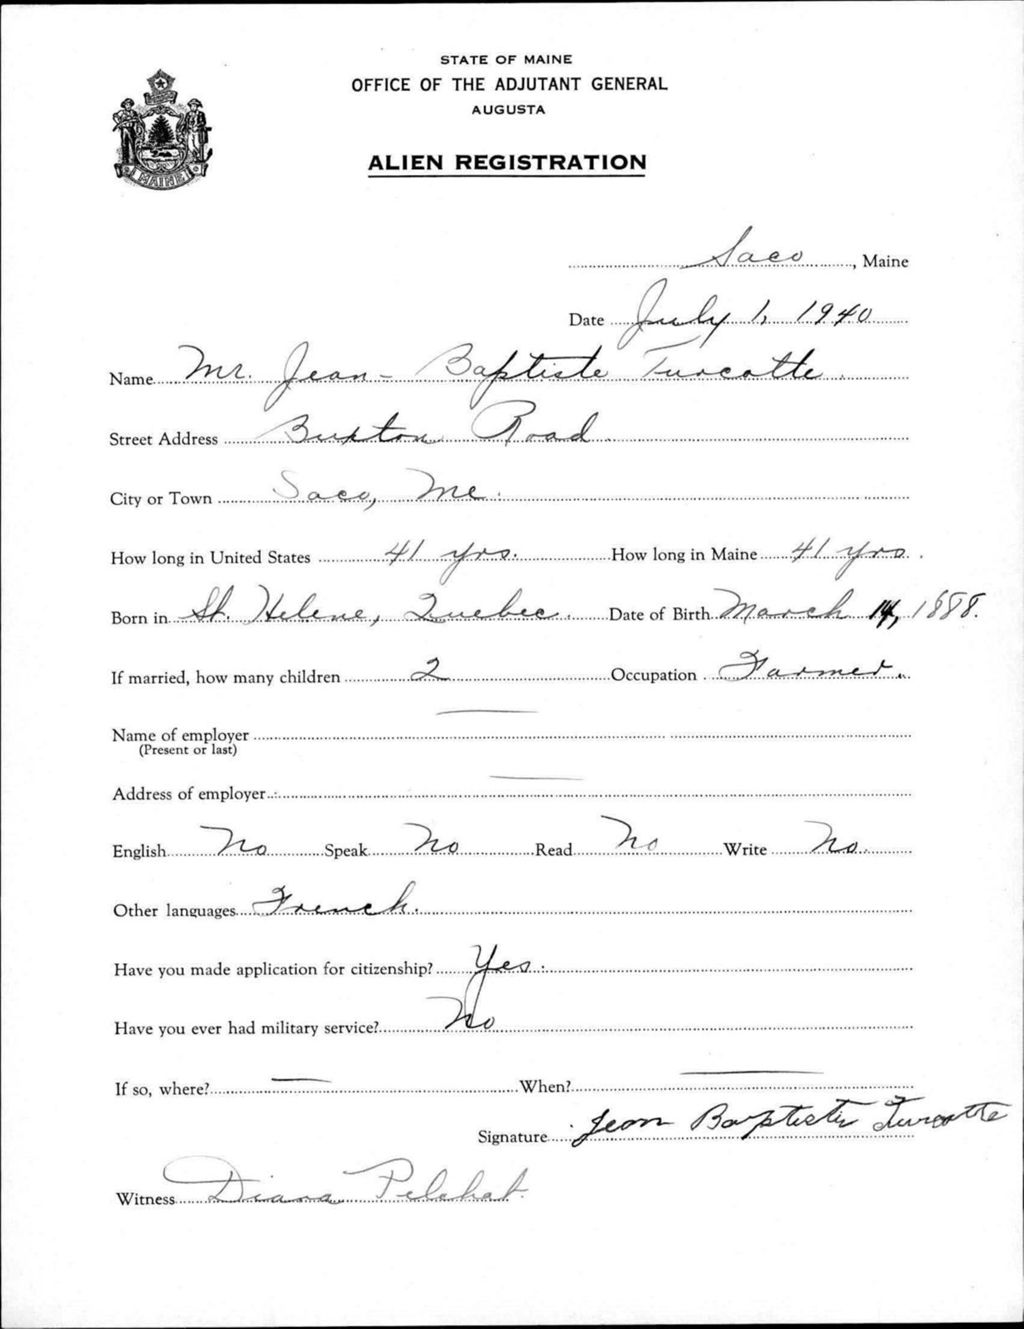 STATE OF MAINE
OFFICE OF THE ADJUTANT GENERAL
AUGUSTA
ALIEN REGISTRATION
MAINE
Saco, Maine
Date July 1, 1940
Name Mr. Jean-Baptiste Turcotte
Street Address Buxton Road
City or Town Saco, Me.
How long in United States 41 yrs. How long in Maine 41 yrs.
Born in St. Helene, Quebec. Date of Birth March 14, 1888.
If married, how many children 2 Occupation Farmer.
Name of employer
(Present or last)
Address of employer
English No Speak No Read No Write No.
Other languages French.
Have you made application for citizenship? Yes.
Have you ever had military service? No
If so, where? — When? —
Signature Jean Baptiste Turcotte
Witness Diana